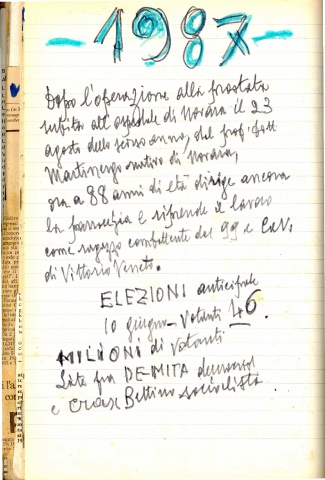 - 1987 -
Dopo l'operazione alla prostata
subita all'ospedale di Novara il 23
agosto dello scorso anno, dal prof. dott.
Martinengo nativo di Novara,
ora a 88 anni di età dirige ancora
la parrocchia e riprende il lavoro
come ragazzo combattente del 99 e Cav.
di Vittorio Veneto.
ELEZIONI anticipate
10 giugno - Votanti 46
MILIONI di votanti
Lite fra DE-MITA
e Crax Bettino socialista.